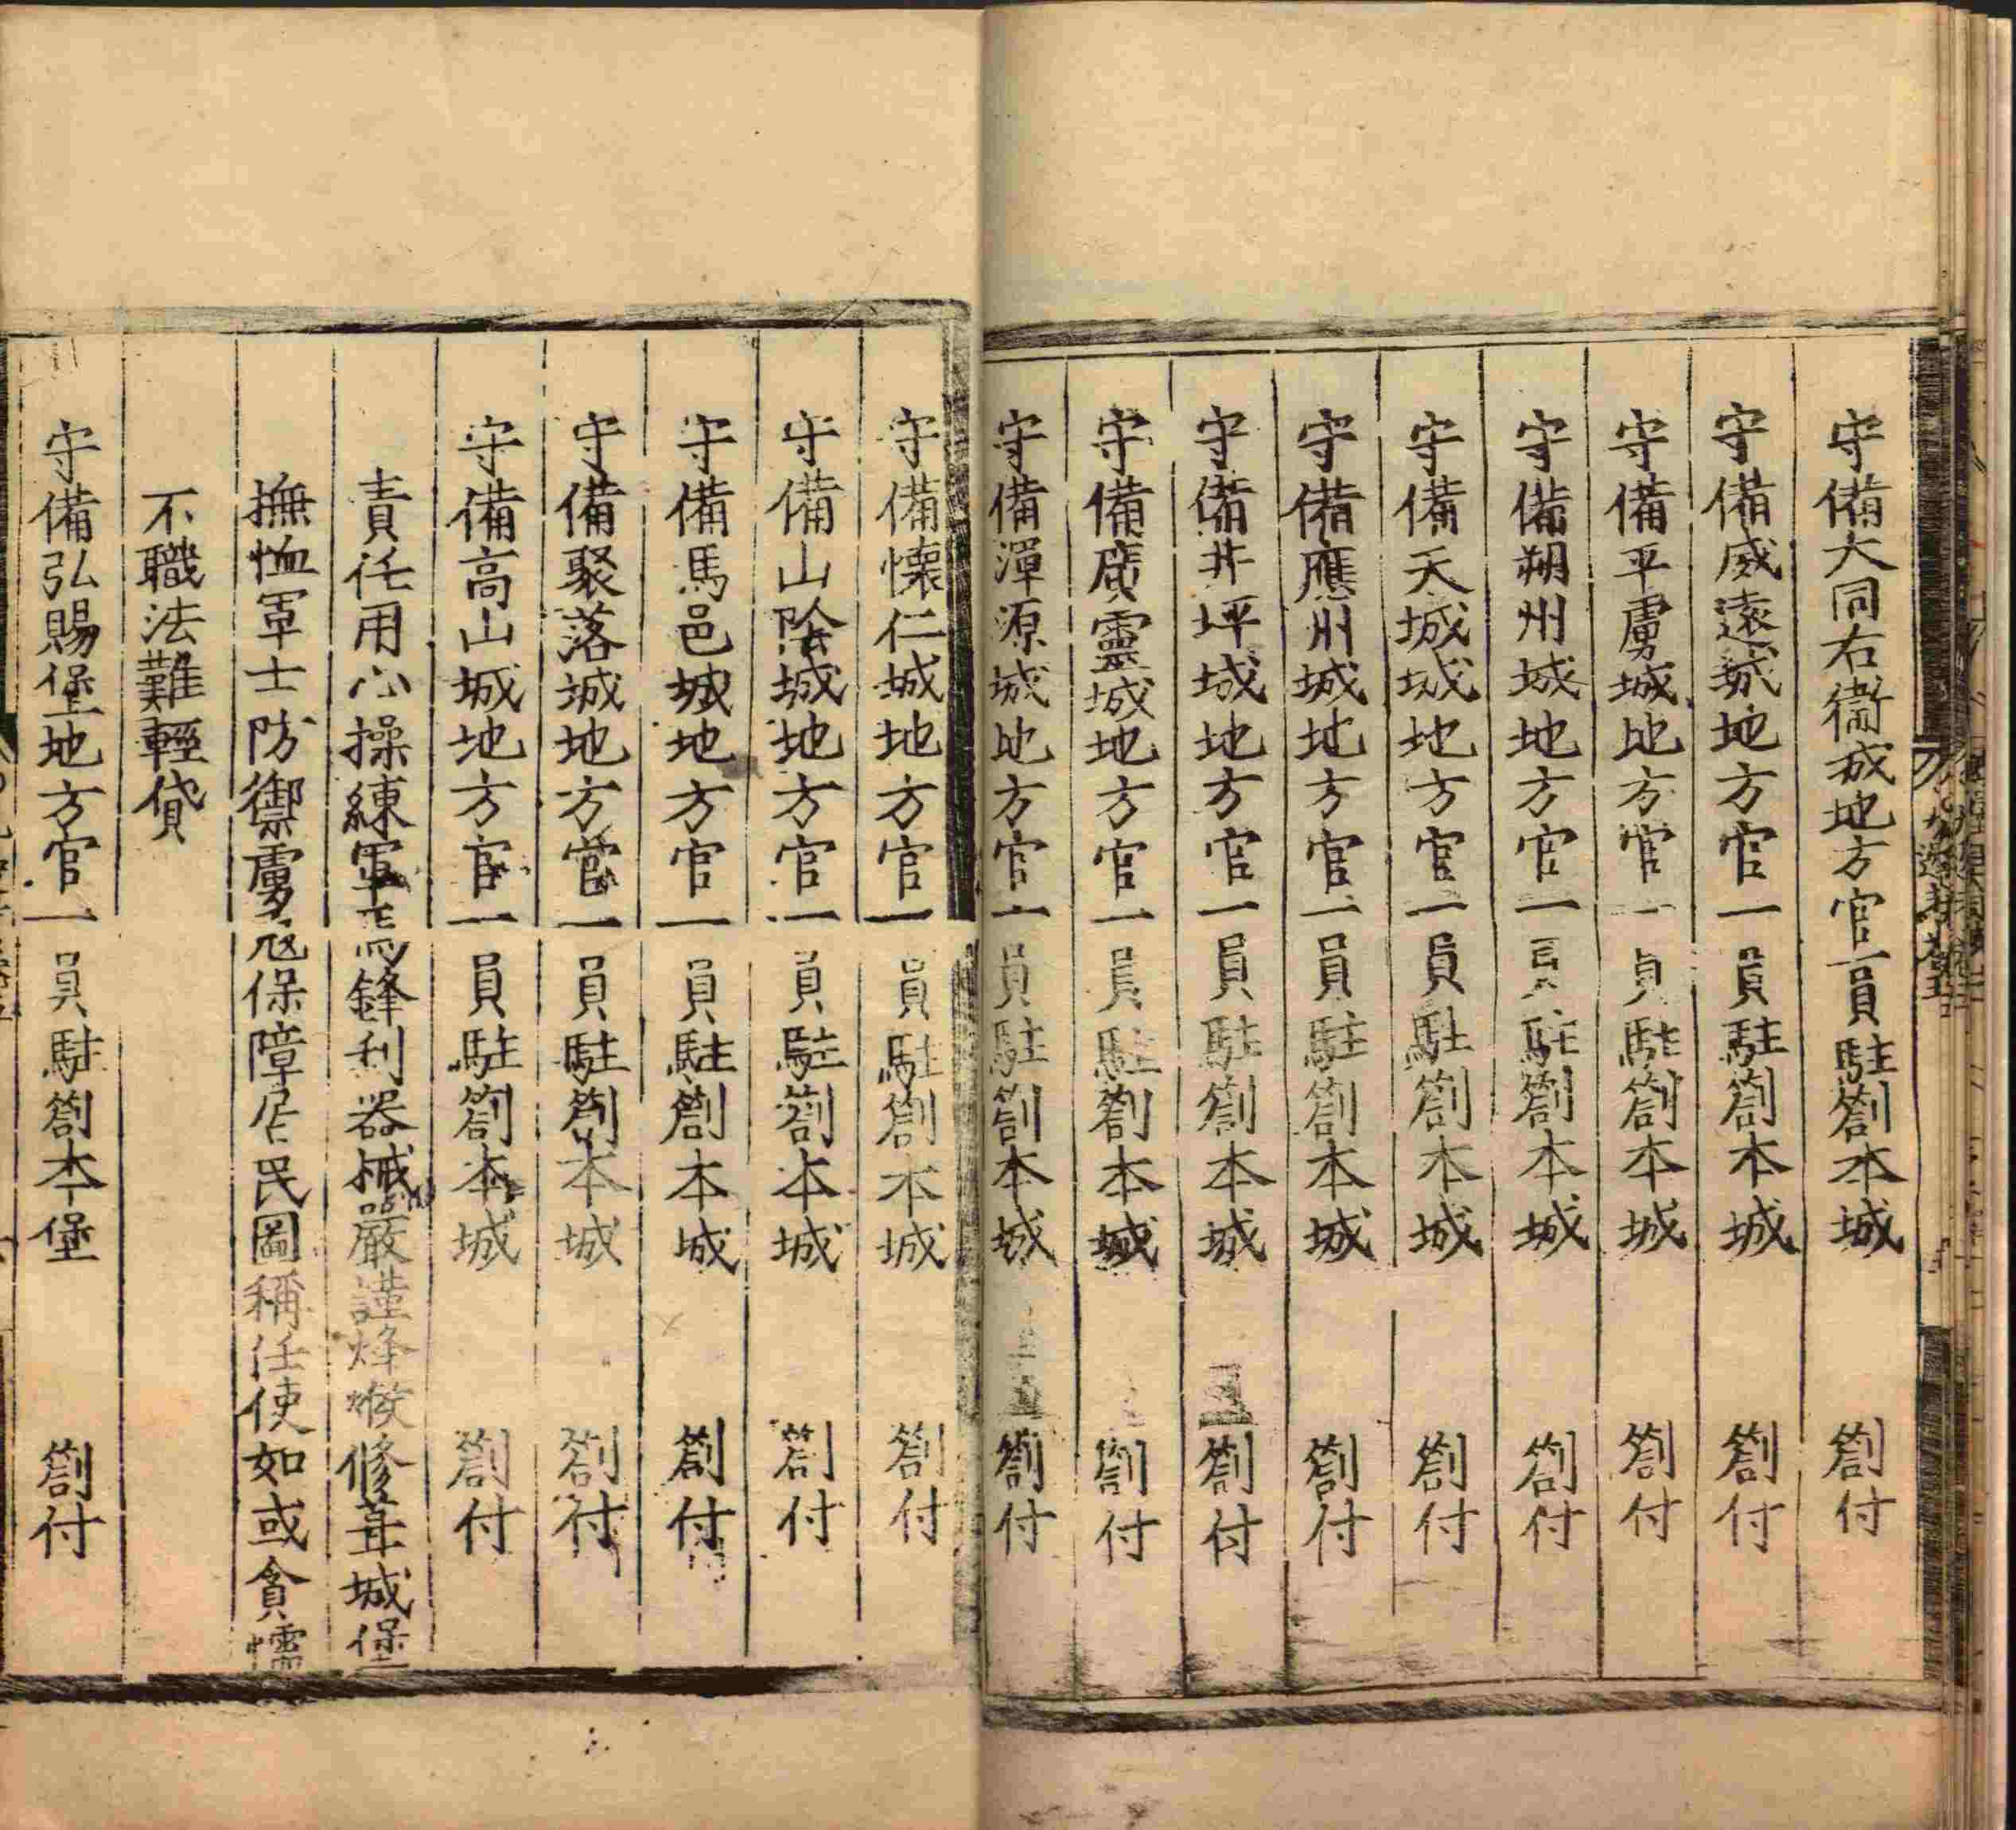 守備大同右衞城地方官一員駐劄本城 劄付
守備威遠城地方官一員駐劄本城 劄付
守備平虜城地方官一員駐劄本城 劄付
守備朔州城地方官一員駐劄本城 劄付
守備天城城地方官一員駐劄本城 劄付
守備應州城地方官一員駐劄本城 劄付
守備井坪城地方官一員駐劄本城 劄付
守備廣靈城地方官一員駐劄本城 劄付
守備渾源城地方官一員駐劄本城 劄付
守備懷仁城地方官一員駐劄本城 劄付
守備山陰城地方官一員駐劄本城 劄付
守備馬邑城地方官一員駐劄本城 劄付
守備聚落城地方官一員駐劄本城 劄付
守備高山城地方官一員駐劄本城 劄付
責任用心操練軍馬鋒利器械嚴謹烽堠修葺城堡
撫恤軍士防禦虜寇保障居民圖稱任使如或貪懦
不職法難輕貸
守備弘賜堡地方官一員駐劄本堡 劄付